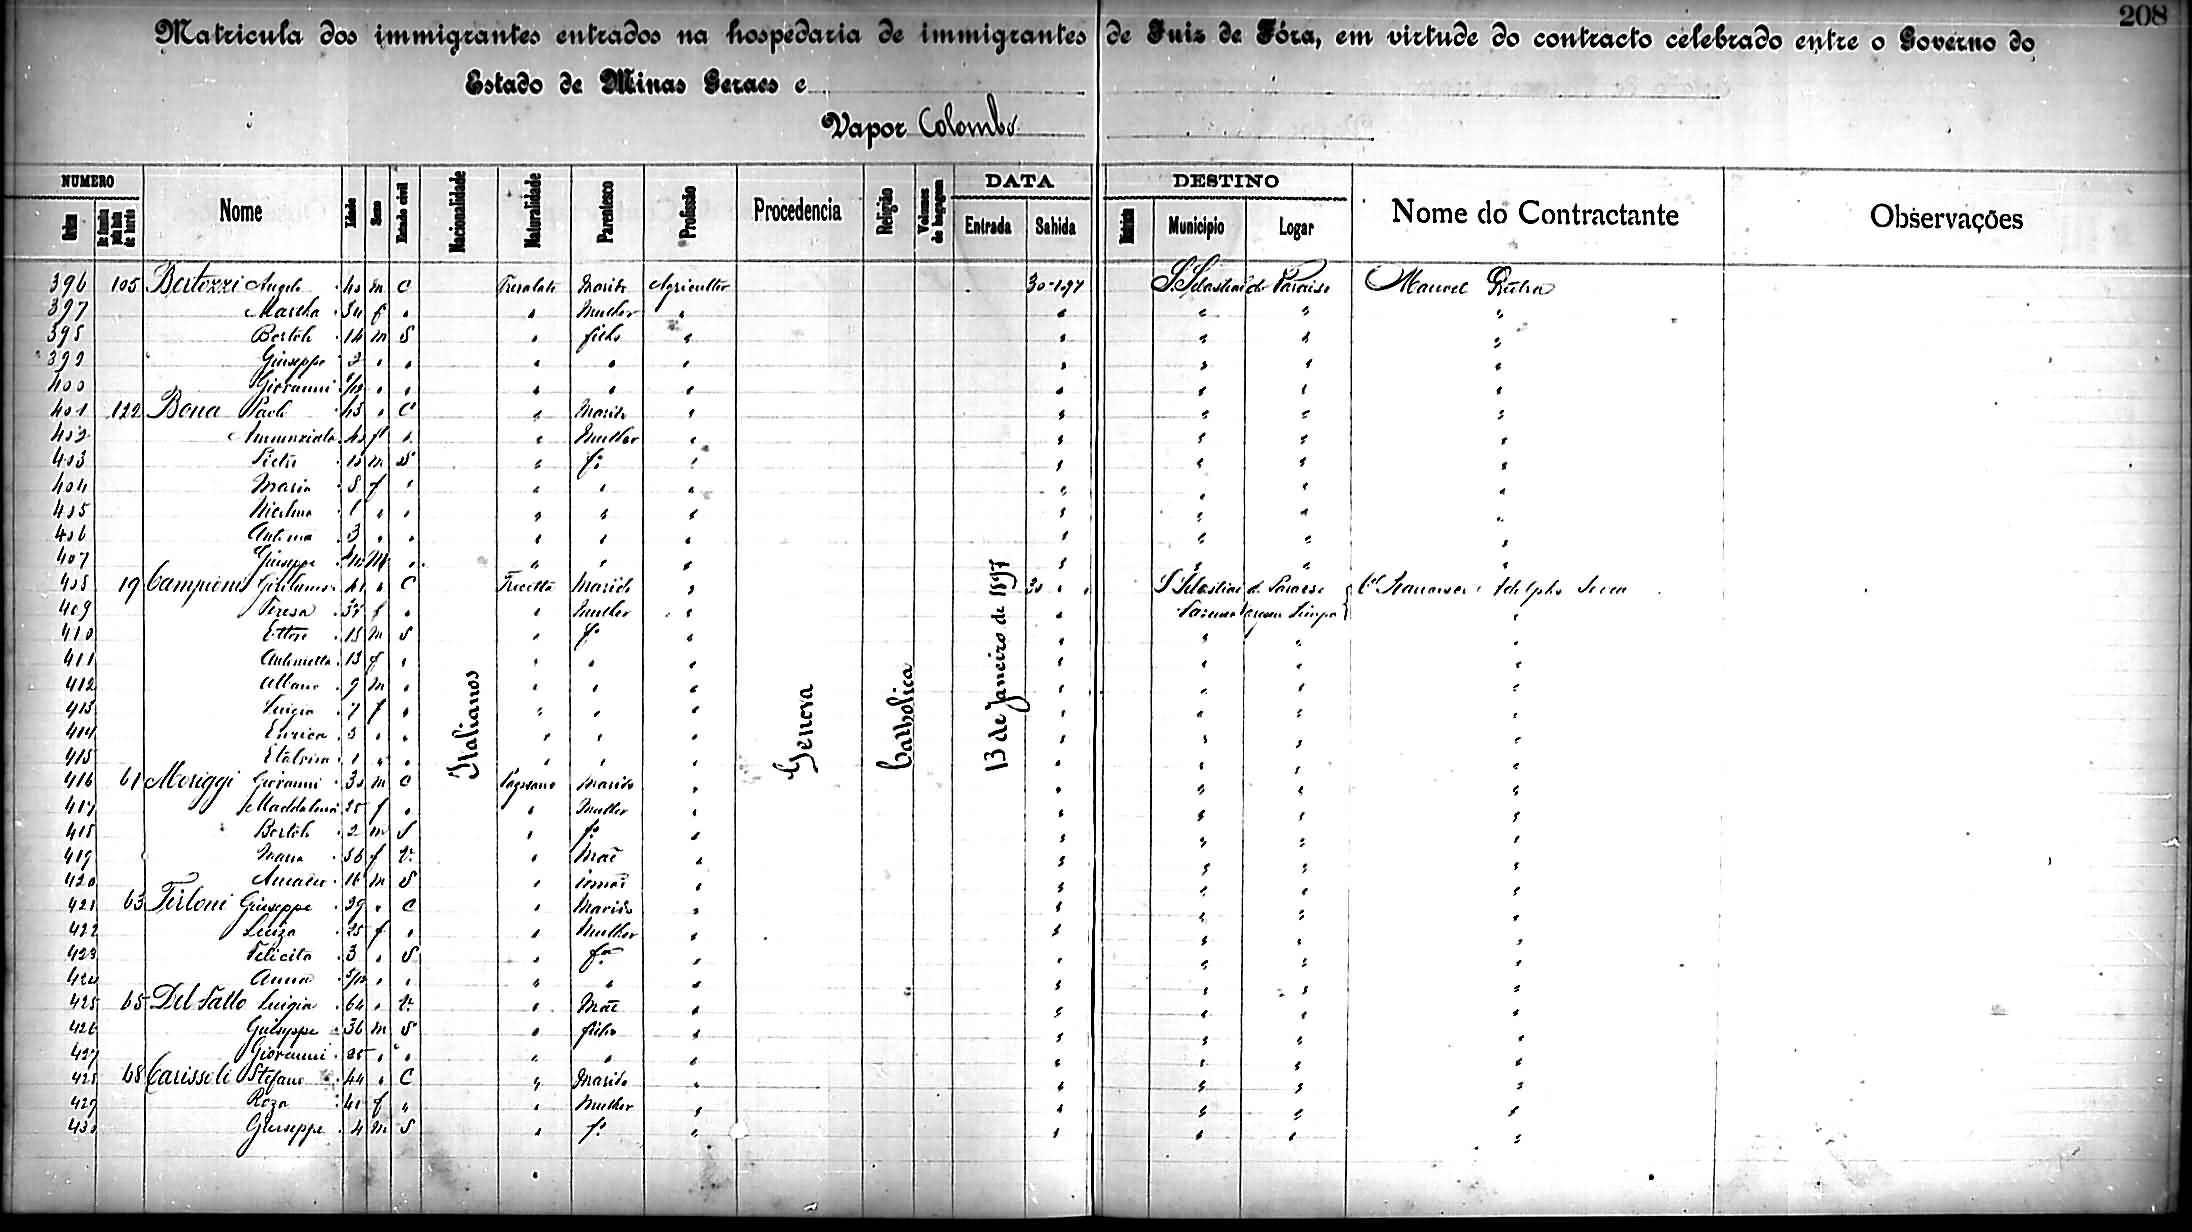 208
Matricula dos immigrantes entrados na hospedaria de immigrantes de Juiz de Fóra, em virtude do contracto celebrado entre o Governo do
Estado de Minas Geraes e
Vapor Colombo
NUMERO Nome Idade Sexo Estado civil Nacionalidade Naturalidade Parentesco Profissão Procedencia Religião Volumes de bagagem DATA DESTINO Nome do Contractante Observações
Ordem Entrada Sahida Municipio Logar
396 105 Bertozzi Angelo 40 m C Marido Agricultor 30-1-97 S. Sebastião do Paraiso Manoel Dutra
397 Martha 34 f " " Mulher " " " " "
398 Bortolo 14 m S " filho " " " " "
399 Giuseppe 2 " " " " " " " " "
400 Giovanni " " " " " " " " "
401 122 Bona Paolo 43 " C " Marido " " " " "
402 Annunziata f " " Mulher " " " " "
403 Pietro 13 m S " fº " " " " "
404 Maria 8 f " " " " " " " "
405 " " " " " " " " "
406 3 " " " " " " " " "
407 Giuseppe m " " " " " " " "
408 19 Campioni 41 " C Marido " 30 " " S Sebastião do Paraiso Adolpho
409 Teresa 37 f " " Mulher " " "
410 Ettore 15 m S " fº " " " " "
411 Antonietta 13 f " " " " " " " "
412 Albano 9 m " " " " " " " "
413 Luigia 7 f " " " " " " " "
414 Enrica 3 " " " " " " " " "
415 1 " " " " " " " " "
416 61 Moriggi Giovanni 30 m C Pagazzano Marido " " " " "
417 Maddalena 25 f " " Mulher " " " " "
418 Bortolo 2 m S " fº " " " " "
419 56 f V. " Mãe " " " " "
420 Amadio 16 m S " irmão " " " " "
421 63 Tirloni Giuseppe 29 " C " Marido " " " " "
422 Luiza 25 f " " Mulher " " " " "
423 Felicita 3 " S " fª " " " " "
424 Anna " " " " " " " " "
425 65 Del Fatto Luigia 64 " V. " Mãe " " " " "
426 Giuseppe 36 m S " filho " " " " "
427 Giovanni 25 " " " " " " " " "
428 68 Carissoli Stefano 44 " C " Marido " " " " "
429 Roza 41 f " " Mulher " " " " "
430 Giuseppe 4 m S " fº " " " " "
Italianos
Genova
Catholica
13 de Janeiro de 1897